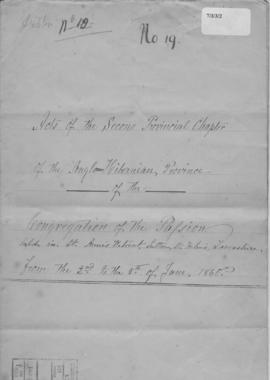 7/3/3/2
No 12
No 19.
Acts of the Second Provincial Chapter
of the Anglo-Hibernian Province
of the
Congregation of the Passion
held in St. Annes Retreat, Sutton, St. Helens, Lancashire.
From the 2nd to the 8th of June, 1860.